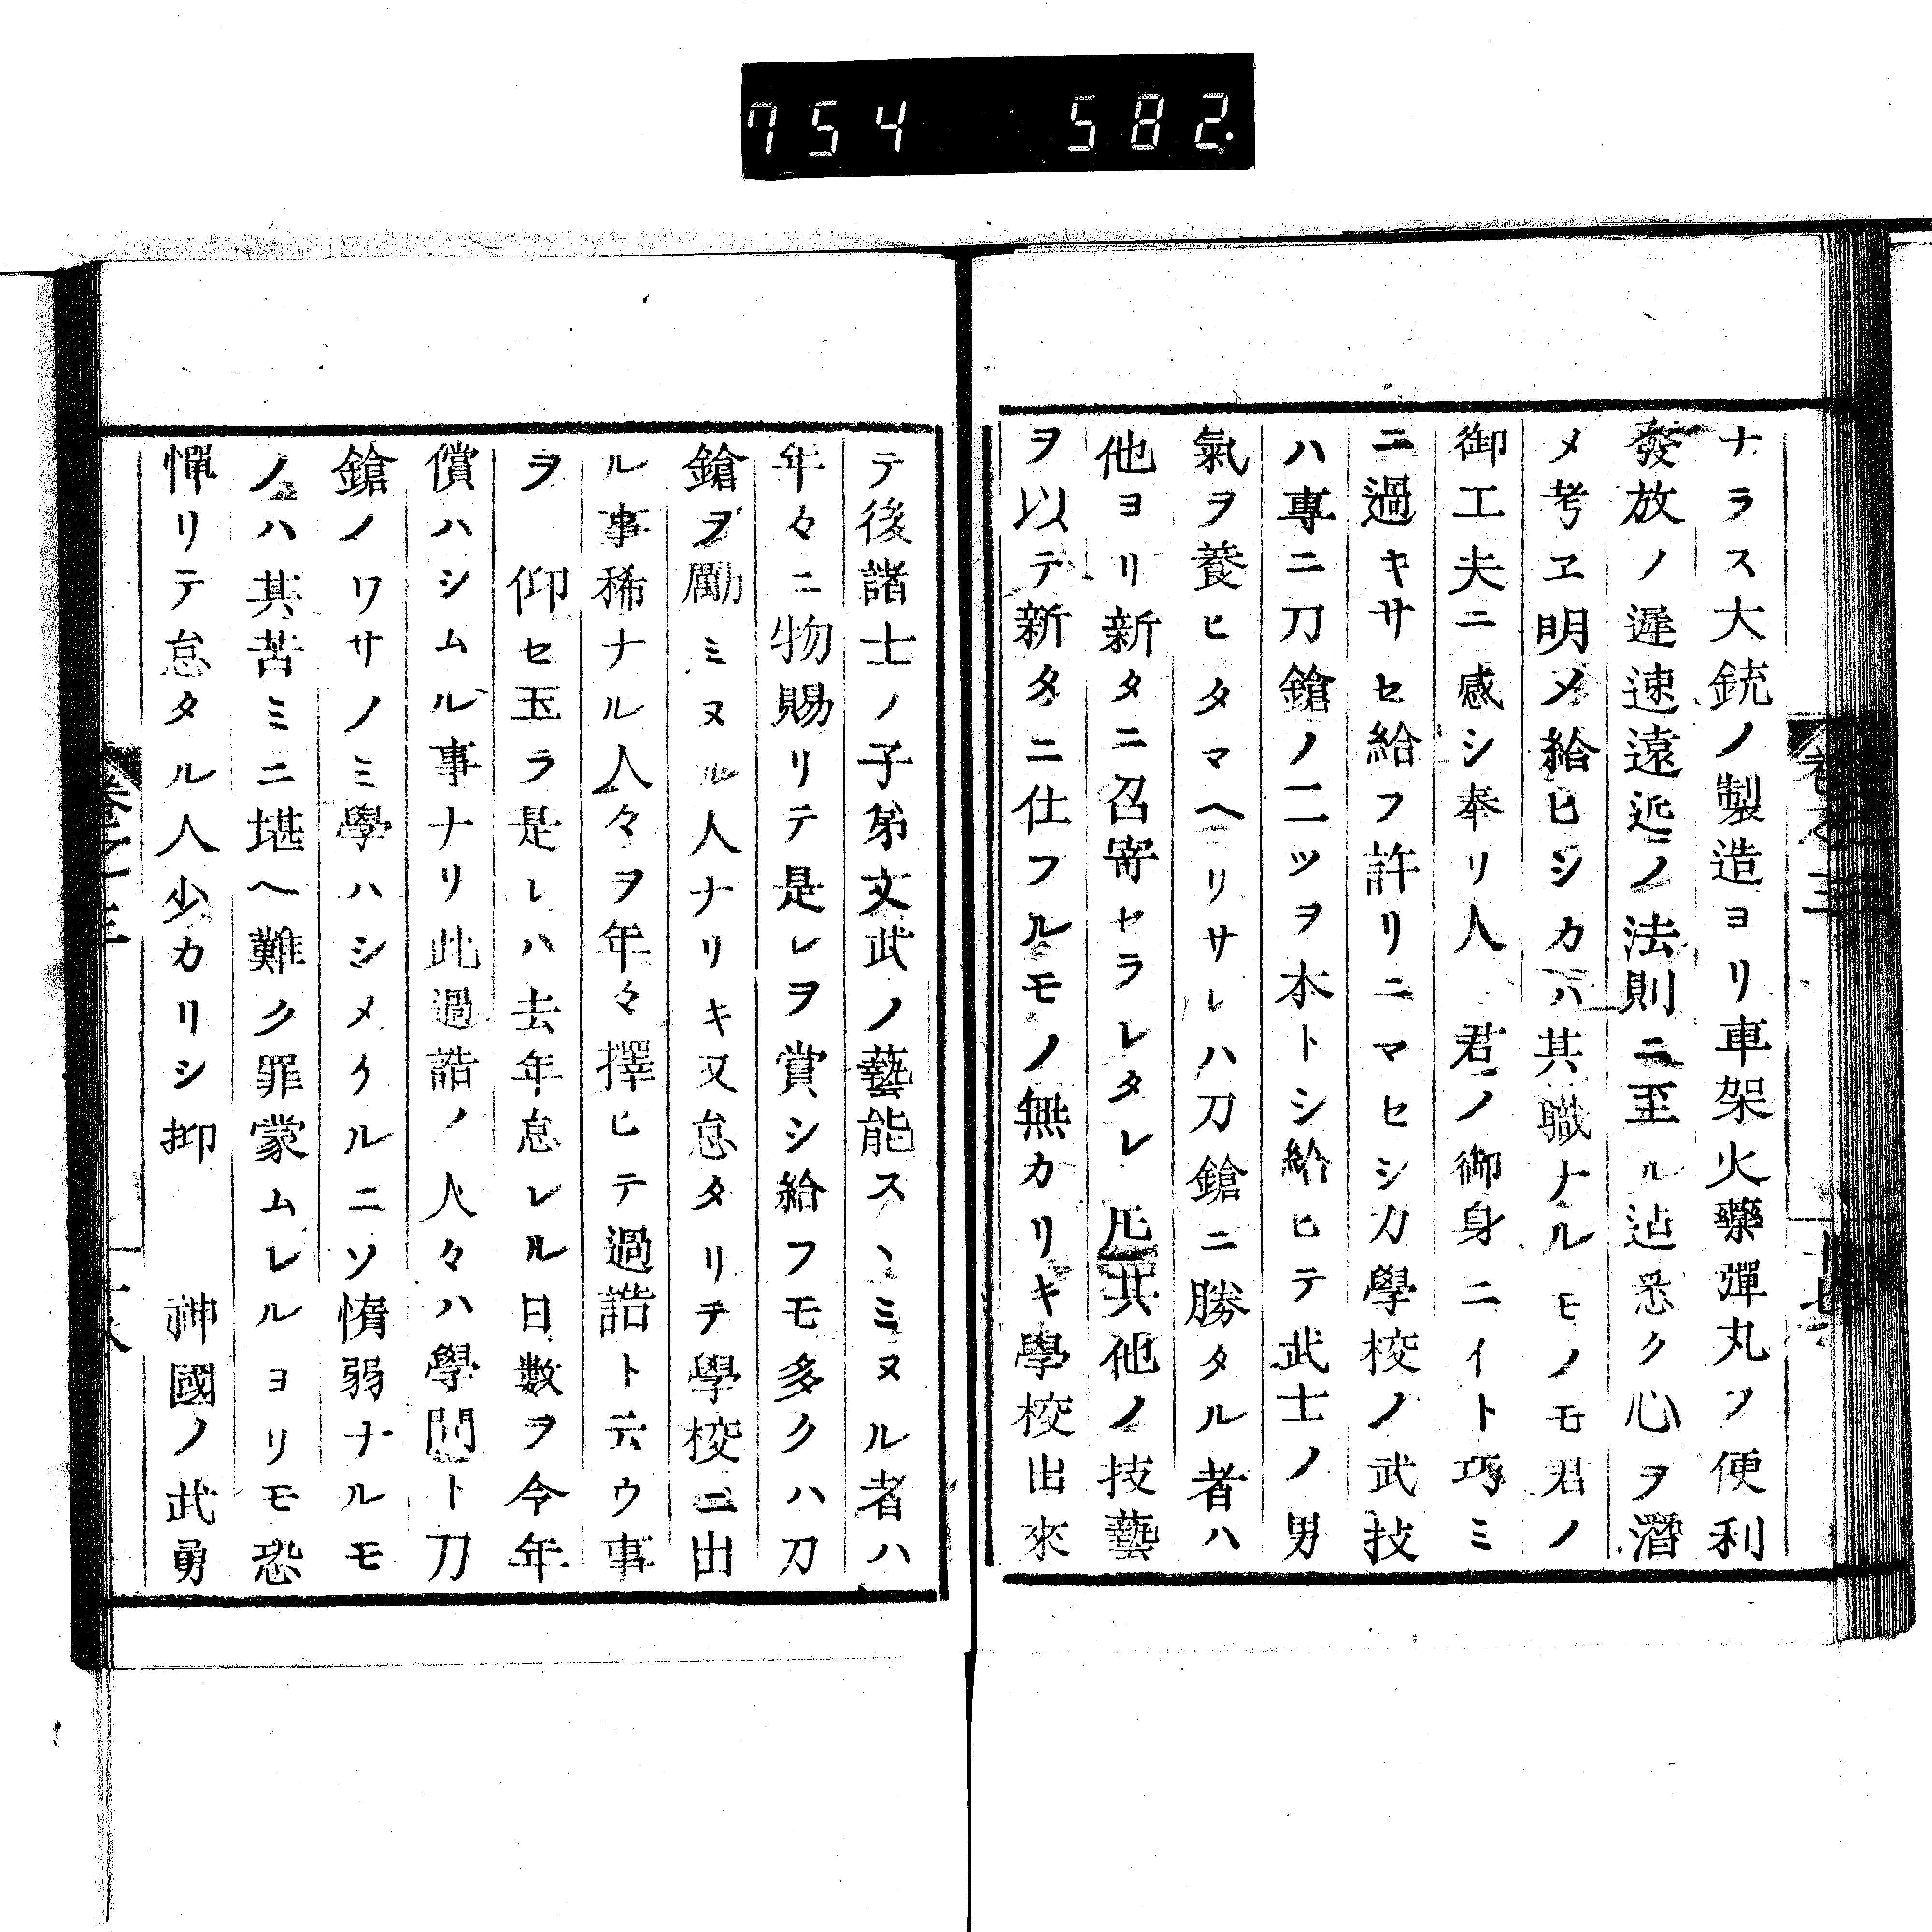 754 582
ナラス大銃ノ製造ヨリ車架火藥彈丸ノ便利
發放ノ遲速遠近ノ法則ニ至ル迠悉ク心ヲ潛
メ考ヱ明メ給ヒシカハ其職ナルモノモ君ノ
御工夫ニ感シ奉リ人 君ノ御身ニイト巧ミ
ニ過キサセ給フ許リニマセシカ學校ノ武技
ハ專ニ刀鎗ノ二ツヲ本トシ給ヒテ武士ノ男
氣ヲ養ヒタマヘリサレハ刀鎗ニ勝タル者ハ
他ヨリ新タニ召寄セラレタレ𪜈其他ノ技藝
ヲ以テ新タニ仕フルモノ無カリキ學校出來
テ後諸士ノ子弟文武ノ藝能スヽミヌル者ハ
年々ニ物賜リテ是レヲ賞シ給フモ多クハ刀
鎗ヲ勵ミヌル人ナリキ又怠タリテ學校ニ出
ル事稀ナル人々ヲ年々擇ヒテ過誥ト云ウ事
ヲ 仰セ玉ラ是レハ去年怠レル日數ヲ今年
償ハシムル事ナリ此過誥ノ人々ハ學問ト刀
鎗ノワサノミ學ハシメケルニソ惰弱ナルモ
ノハ其苦ミニ堪ヘ難ク罪蒙ムレルヨリモ恐
憚リテ怠タル人少カリシ抑 神國ノ武勇
卷之三